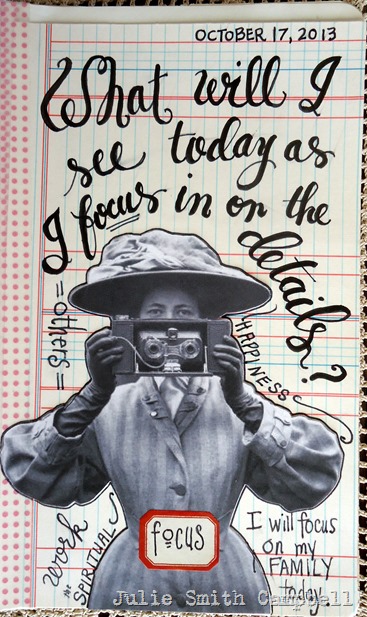 OCTOBER 17, 2013
What will I
see today as
I focus in on the
details?
= others =
HAPPINESS
the work
SPIRITUAL
focus
I will focus
on my
FAMILY
today.
Julie Smith Campbell